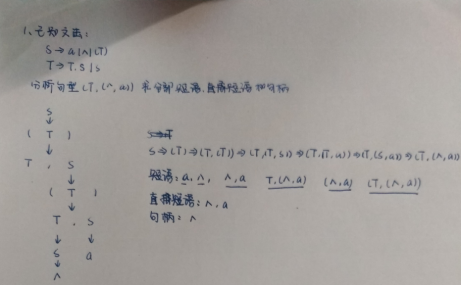 1、已知文法:
S→a|∧|(T)
T→T,S|S
分析句型(T,(∧,a)) 求全部短语,直接短语和句柄
S
↓
( T )
↓
T , S
↓
( T )
↓
T , S
↓ ↓
S a
↓
∧
S⇒(T)⇒(T,(T))⇒(T,(T,S))⇒(T,(T,a))⇒(T,(S,a))⇒(T,(∧,a))
短语: a, ∧, ∧,a T,(∧,a) (∧,a) (T,(∧,a))
直接短语: ∧, a
句柄: ∧